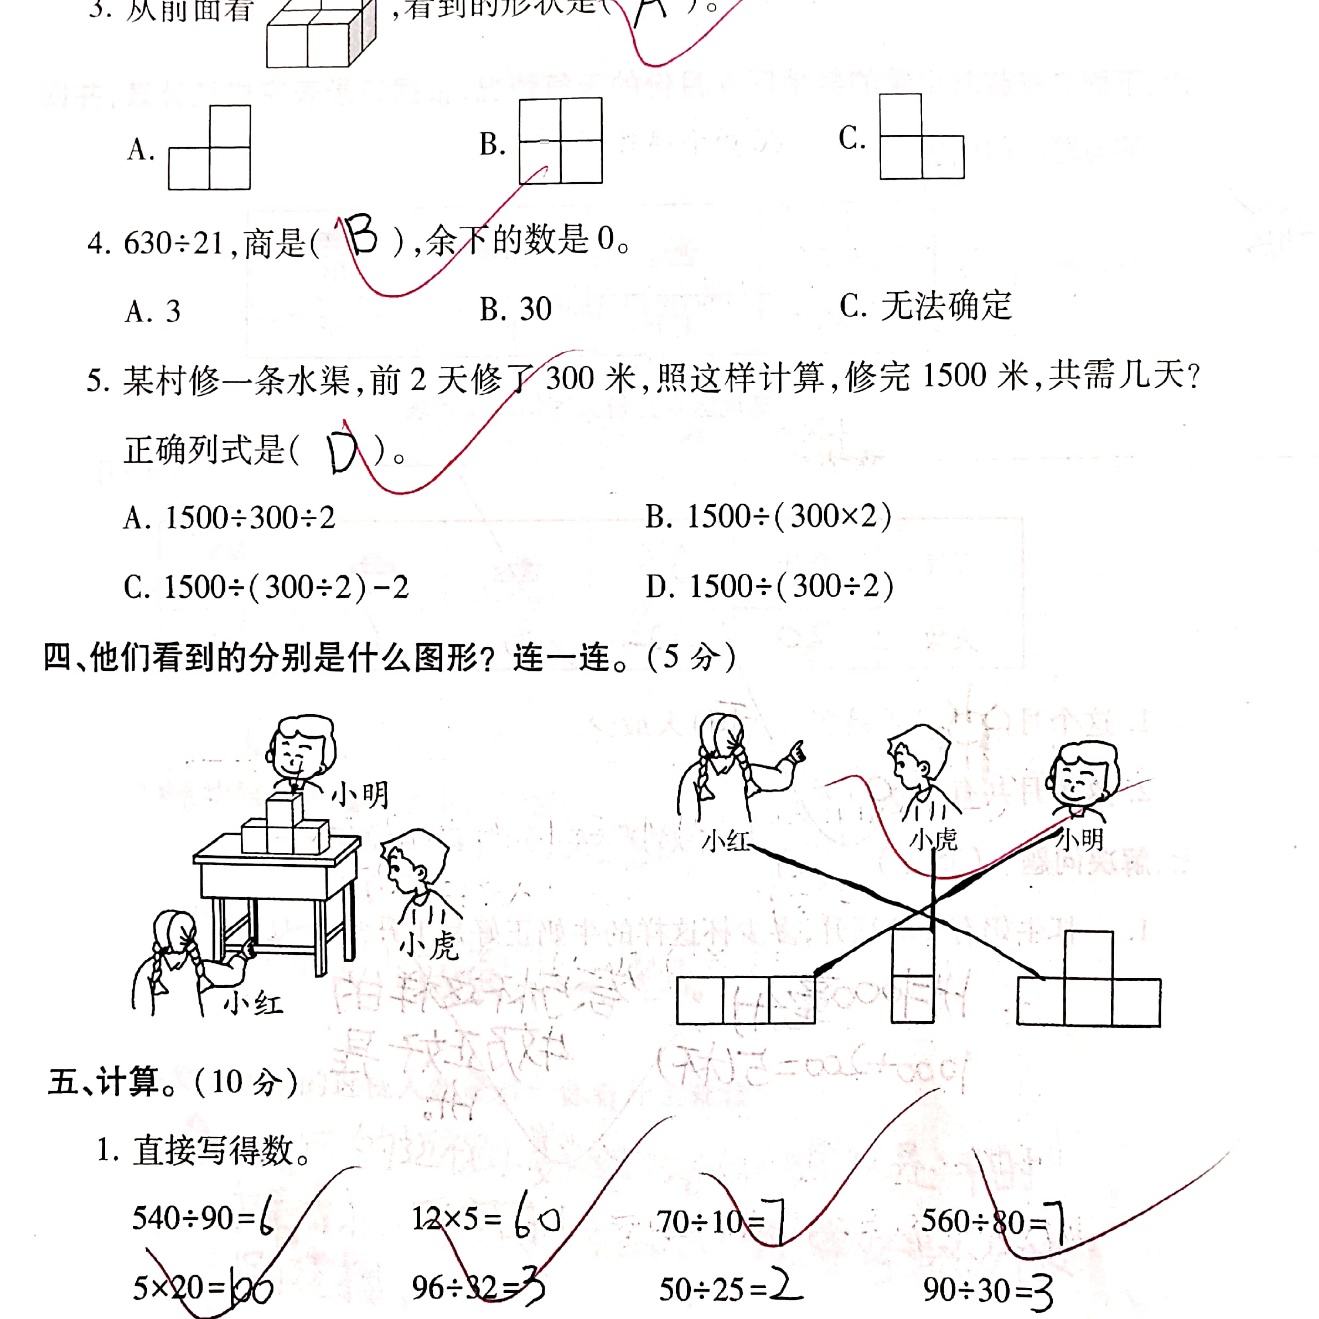 3. 从前面看 ,看到的形状是( A )。
A. B. C.
4. 630÷21,商是( B ),余下的数是0。
A. 3 B. 30 C. 无法确定
5. 某村修一条水渠,前2天修了300米,照这样计算,修完1500米,共需几天?
正确列式是( D )。
A. 1500÷300÷2 B. 1500÷(300×2)
C. 1500÷(300÷2)-2 D. 1500÷(300÷2)
四、他们看到的分别是什么图形? 连一连。(5分)
小明
小虎
小红
小红 小虎 小明
五、计算。(10分)
1. 直接写得数。
540÷90=6 12×5=60 70÷10=7 560÷80=7
5×20=100 96÷32=3 50÷25=2 90÷30=3